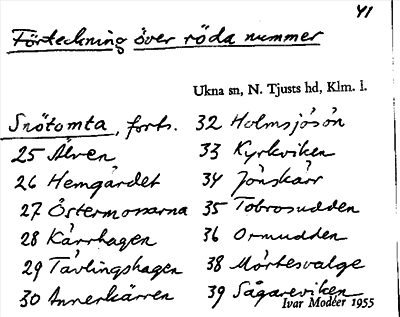 41
Förteckning över röda nummer
Ukna sn, N. Tjusts hd, Klm. l.
Snötomta, forts.
25 Älven
26 Hemgärdet
27 Östermossarna
28 Kärrhagen
29 Tävlingshagen
30 Annerkärren
32 Holmsjösön
33 Kyrkviken
34 Jönskärr
35 Tobrosudden
36 Ormudden
38 Mörtesvalge
39 Sågareviken
Ivar Modéer 1955